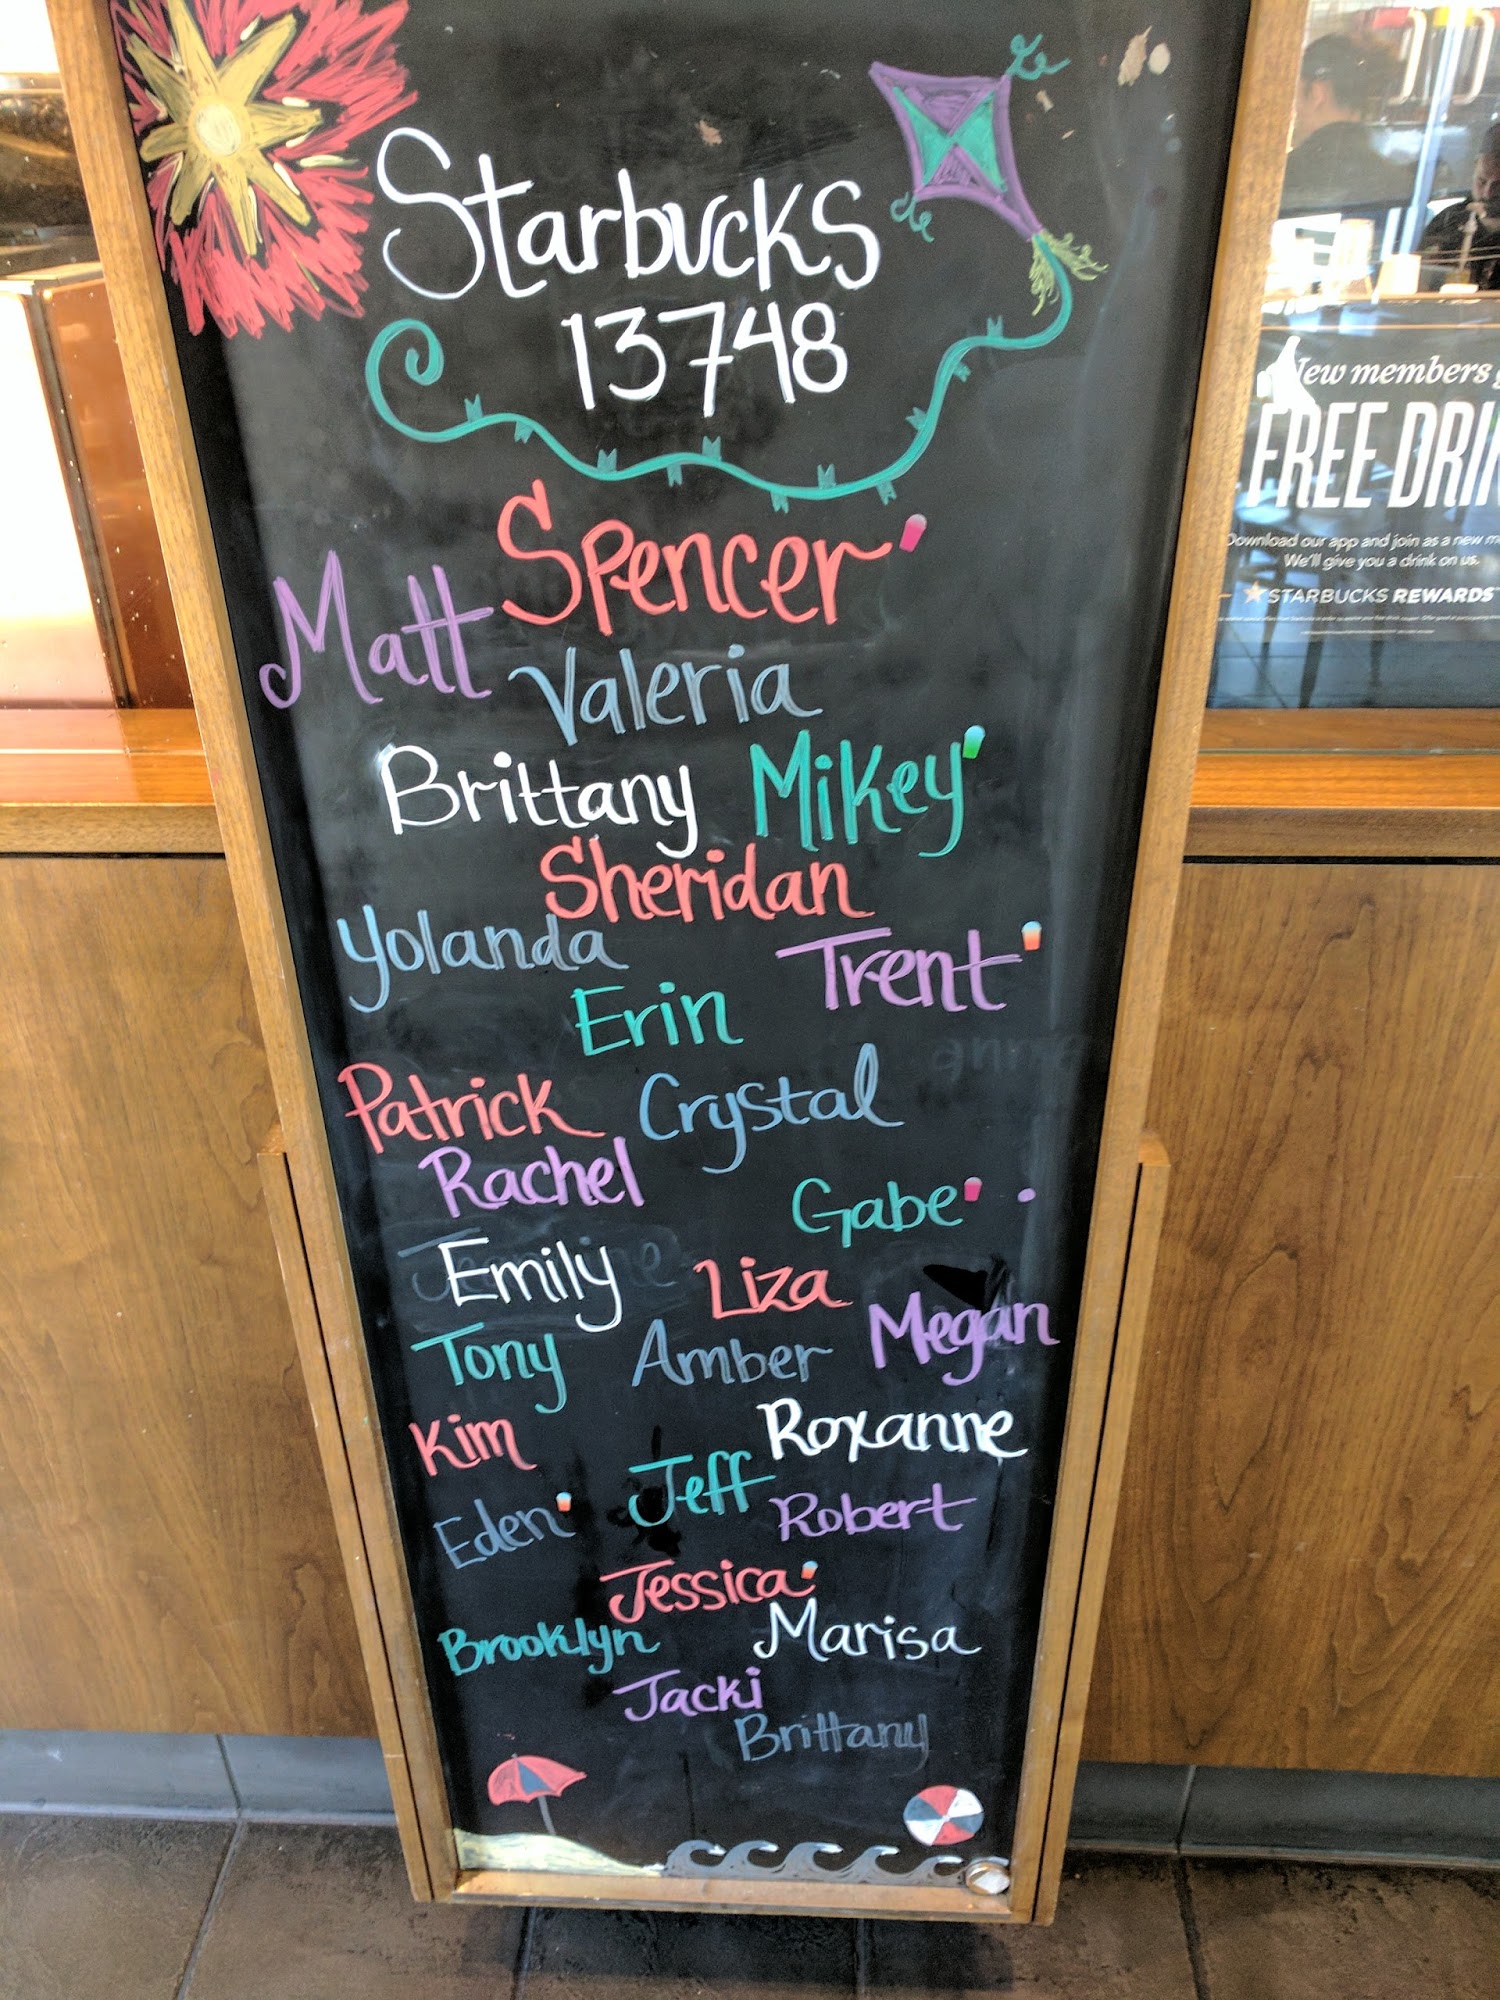 Starbucks
13748
Spencer
Matt
Valeria
Brittany Mikey
Sheridan
Yolanda Trent
Erin
Patrick Crystal
Rachel
Gabe
Emily Liza
Megan
Tony Amber
Kim Roxanne
Jeff
Eden Robert
Jessica
Brooklyn Marisa
Jacki
Brittany
New members
FREE DRIN
Download our app and join as a new m
We'll give you a drink on us.
STARBUCKS REWARDS